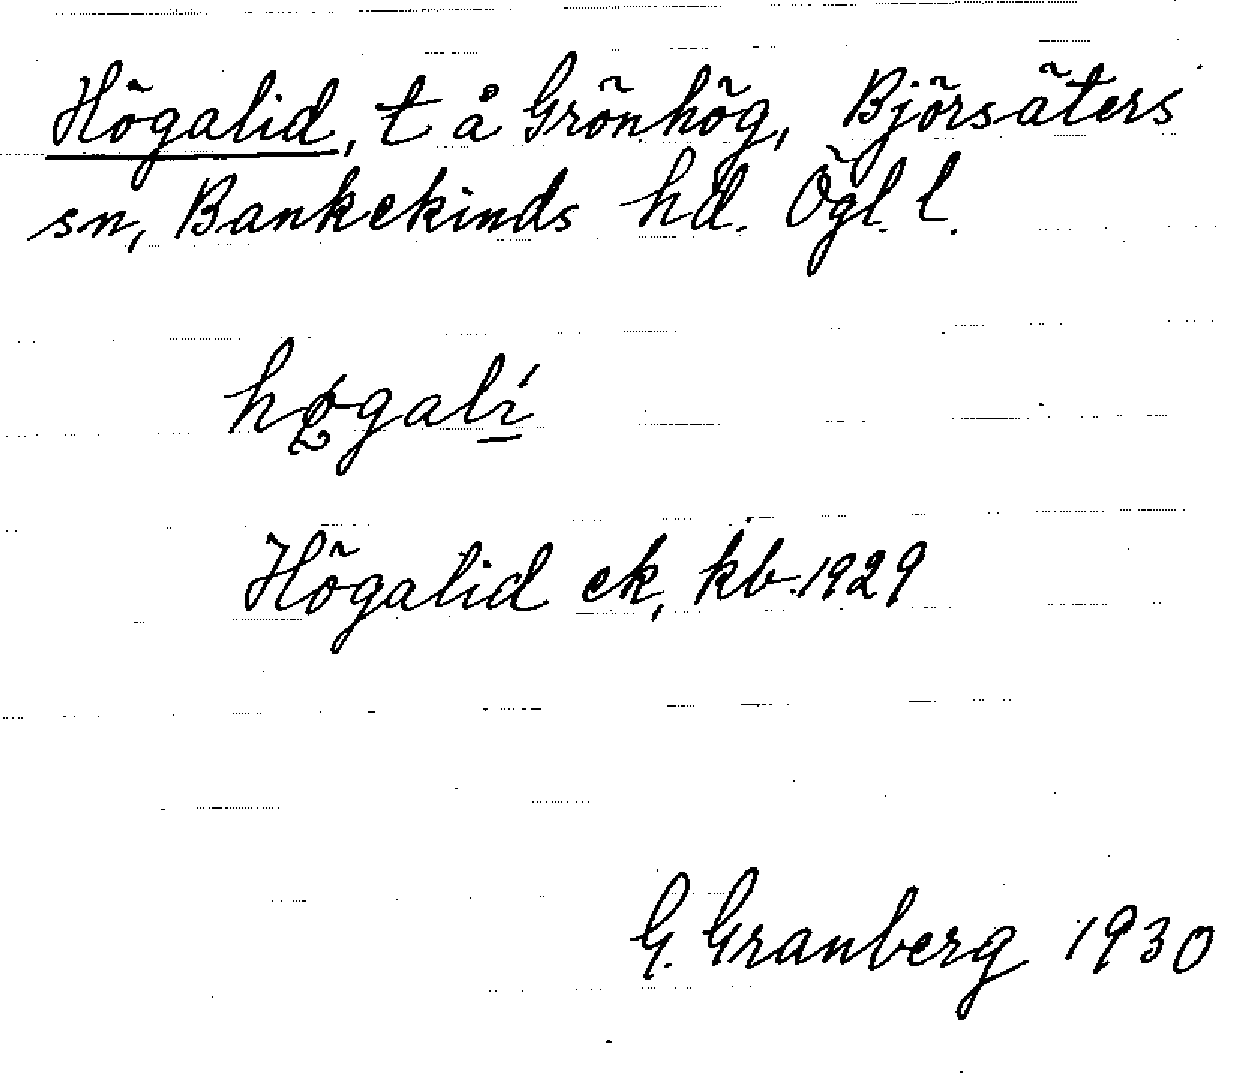 Högalid, t å Grönhög, Björsäters
sn, Bankekinds hd. Ögl. l.
høgalí
Högalid ek, kb. 1929
G. Granberg 1930